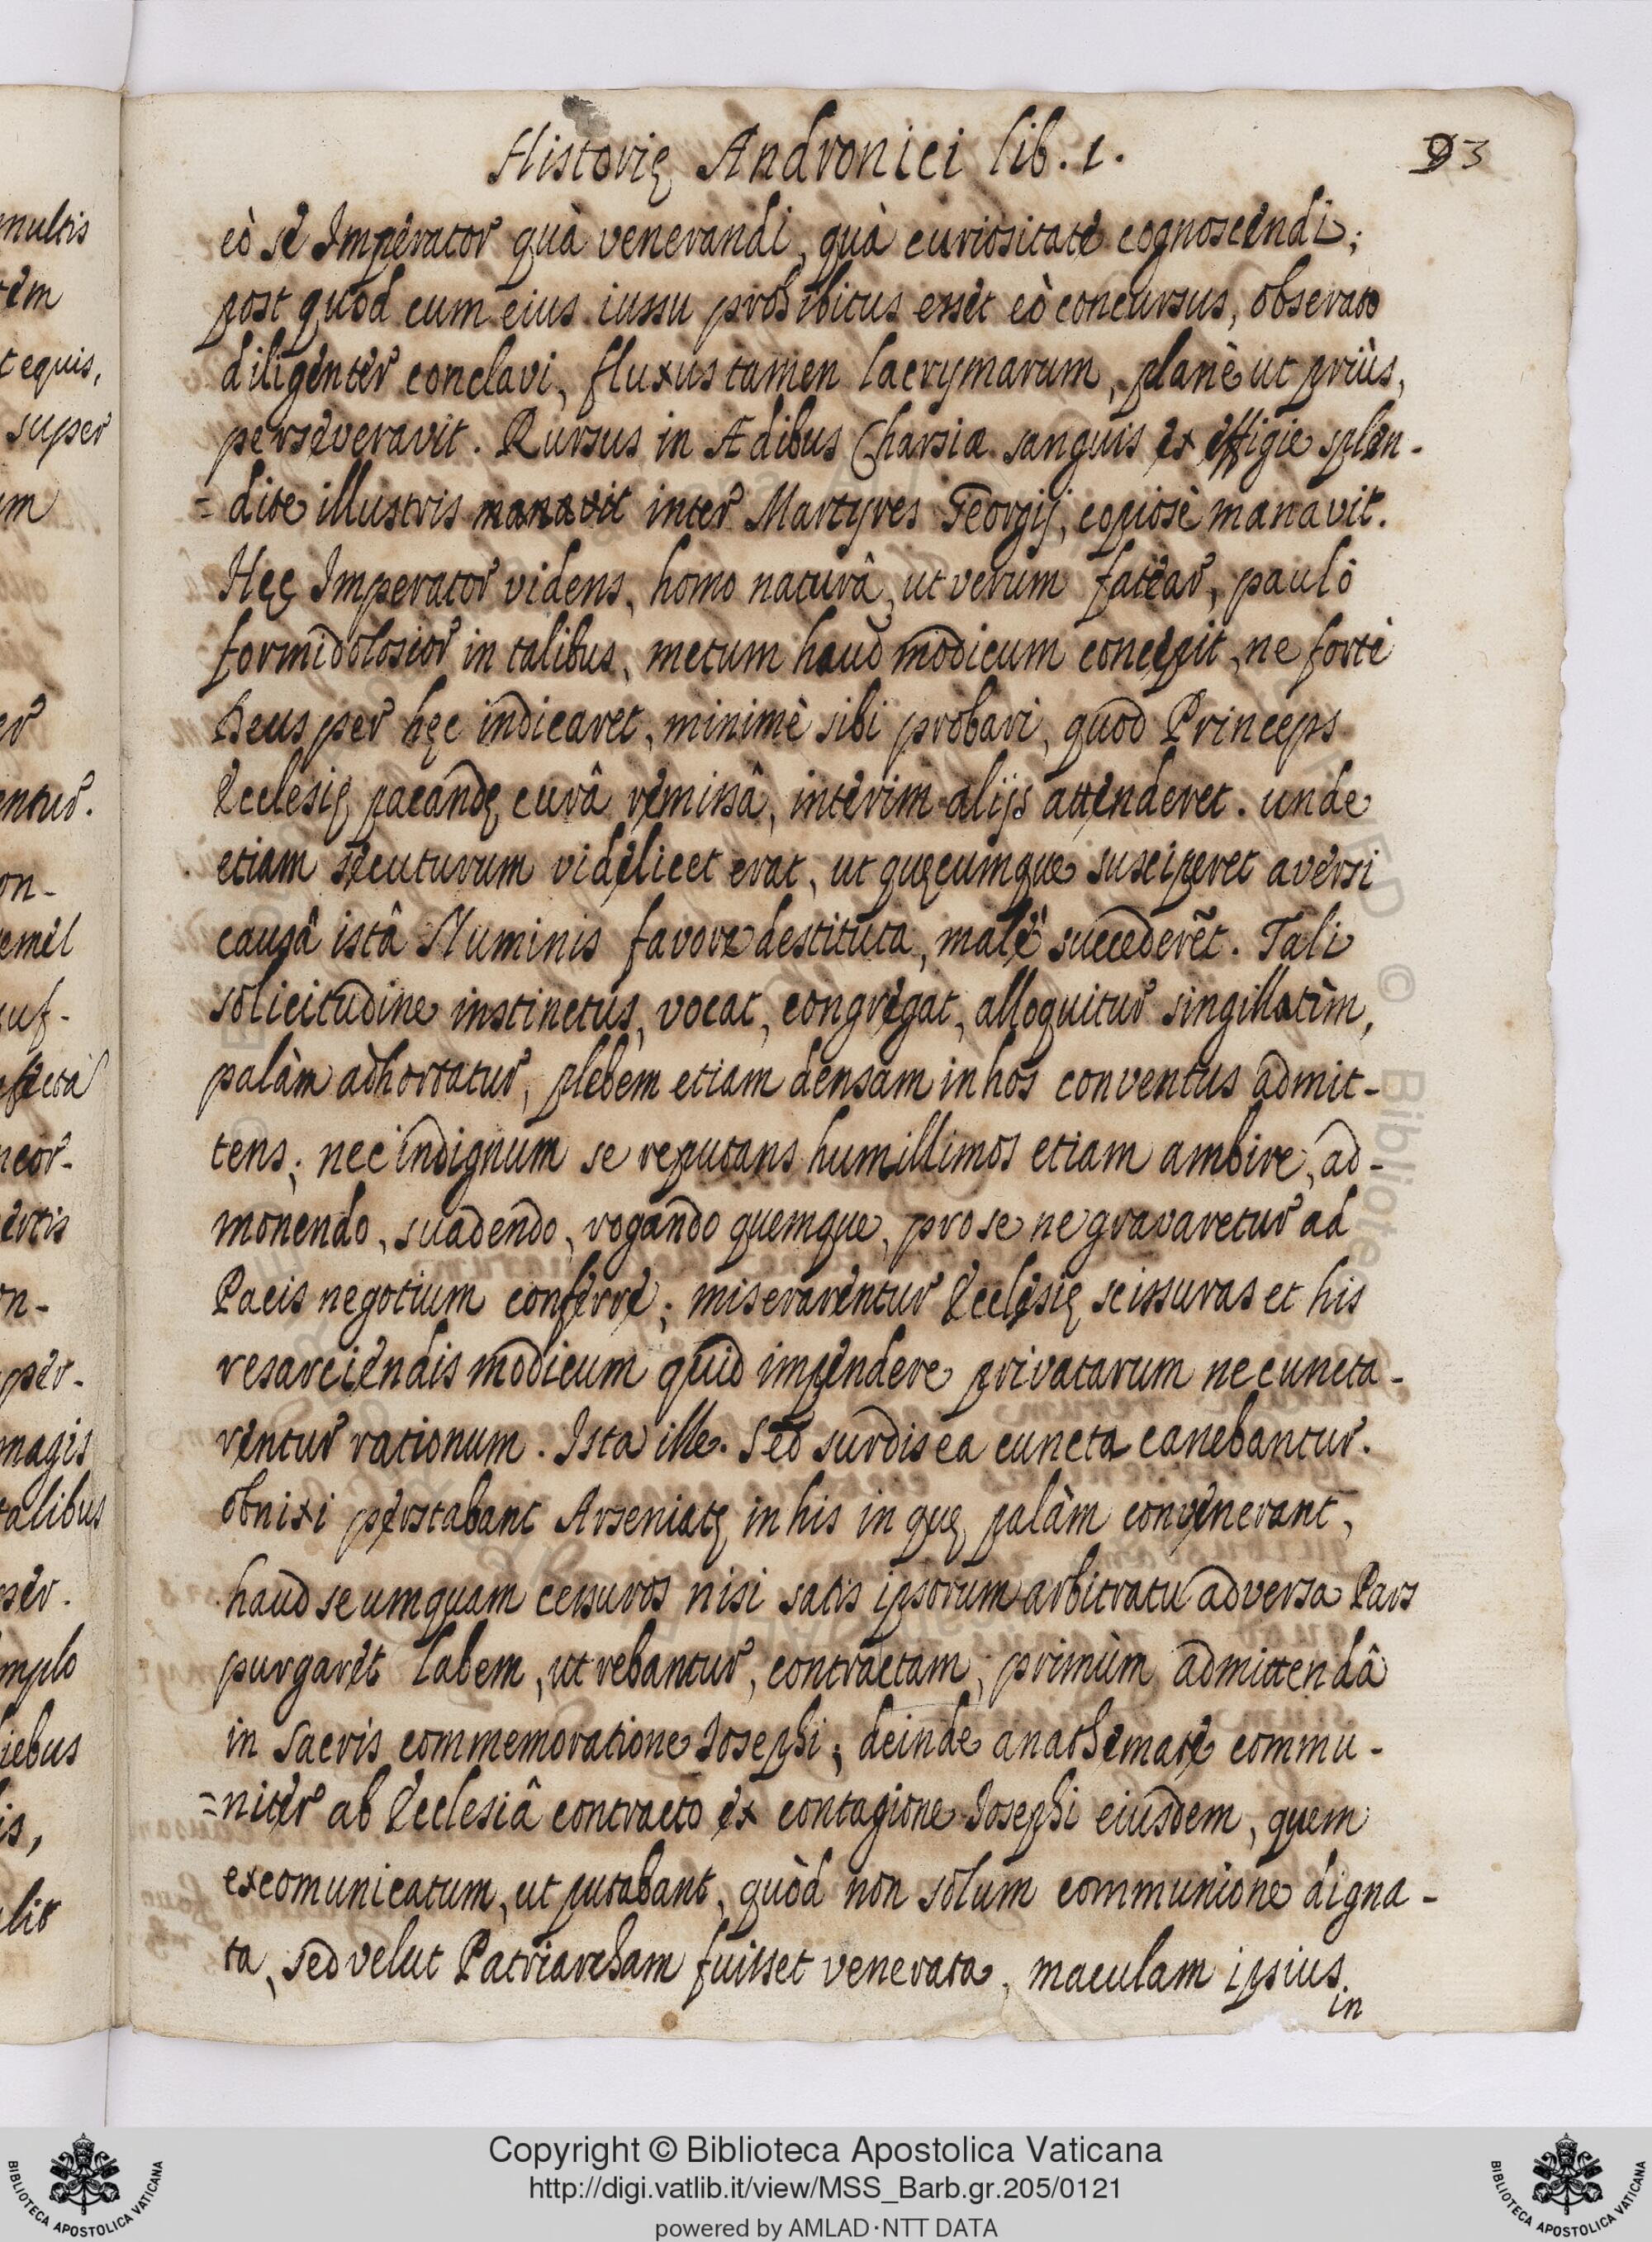 Historię Andronici lib. 1.
93
eò se Imperator quà venerandi, quà curiositate cognoscendi;
post quod cum eius iussu prohibitus esset eò concursus, obserato
diligenter conclavi, fluxus tamen lacrymarum, planè ut priùs,
perseveravit. Rursus in Ædibus Charsiæ sanguis ex effigie splen-
=dite illustris manavit inter Martyres Georgij, copiosè manavit.
Hęc Imperator videns, homo naturâ, ut verum fatear, paulò
formidolosior in talibus, metum haud modicum concepit, ne fortè
Deus per hęc indicaret, minimè sibi probari, quod Princeps
Ecclesię pacandę curâ remissâ, interim alijs attenderet. unde
etiam secuturum videlicet erat, ut quęcumque susciperet aversi
causâ istâ Numinis favore destituta, malè succederẽt. Tali
solicitudine instinctus, vocat, congregat, alloquitur singillatìm,
palàm adhortatur, plebem etiam densam in hos conventus admit-
tens; nec indignum se reputans humillimos etiam ambire, ad-
monendo, suadendo, rogando quemque, pro se ne gravaretur ad
Pacis negotium conferre; miserarentur Ecclesię scissuras et his
resarciendis modicum quid impendere privatarum ne cuncta-
rentur rationum. Ista ille. Sed surdis ea cuncta canebantur.
obnixi perstabant Arseniatę in his in quę palàm convenerant,
haud se umquam cessuros nisi satis ipsorum arbitratu adversa Pars
purgaret labem, ut rebantur, contractam; primùm admittendâ
in sacris commemoratione Josephi; deinde anathemate commu-
=niter ab Ecclesiâ contracto ex contagione Josephi eiusdem, quem
excomunicatum, ut putabant, quòd non solum communione digna-
ta, sed velut Patriarcham fuisset venerata, maculam ipsius
in
multis
equis,
super
magis
talibus
Copyright © Biblioteca Apostolica Vaticana
http://digi.vatlib.it/view/MSS_Barb.gr.205/0121
powered by AMLAD·NTT DATA
BIBLIOTECA APOSTOLICA VATICANA
BIBLIOTECA APOSTOLICA VATICANA